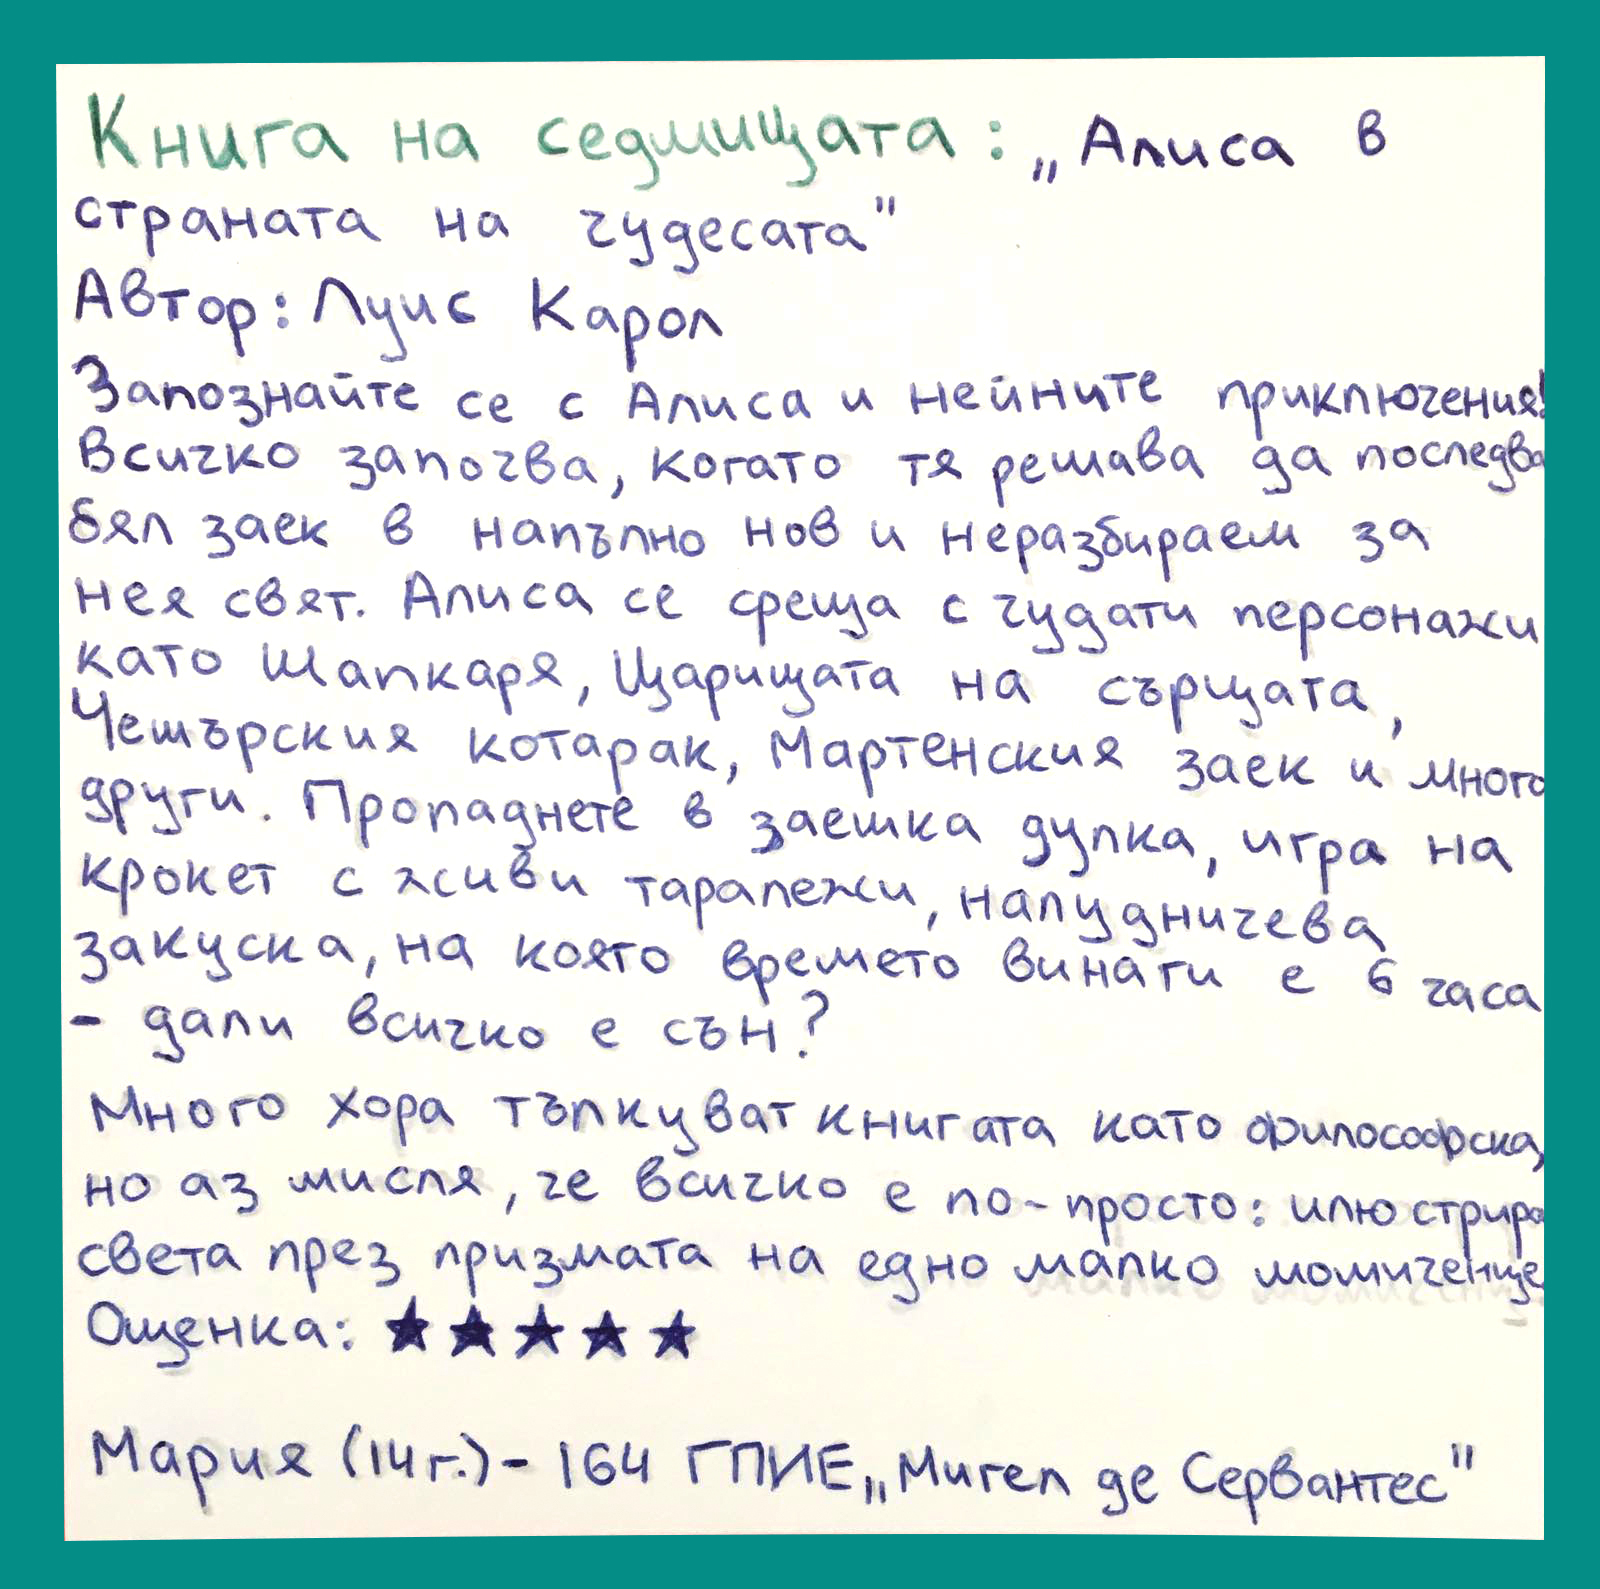 Книга на седмицата: „Алиса в
страната на чудесата"
Автор: Луис Карол
Запознайте се с Алиса и нейните приключения!
Всичко започва, когато тя решава да последва
бял заек в напълно нов и неразбираем за
нея свят. Алиса се среща с чудати персонажи
като Шапкаря, Царицата на сърцата,
Чешърския котарак, Мартенския заек и много
други. Пропаднете в заешка дупка, игра на
крокет с живи таралежи, налудничева
закуска, на която времето винаги е 6 часа
- дали всичко е сън?
Много хора тълкуват книгата като философска,
но аз мисля, че всичко е по-просто: илюстрира
света през призмата на едно малко момиченце.
Оценка: ★★★★★
Мария (14г.) - 164 ГПИЕ „Мигел де Сервантес"